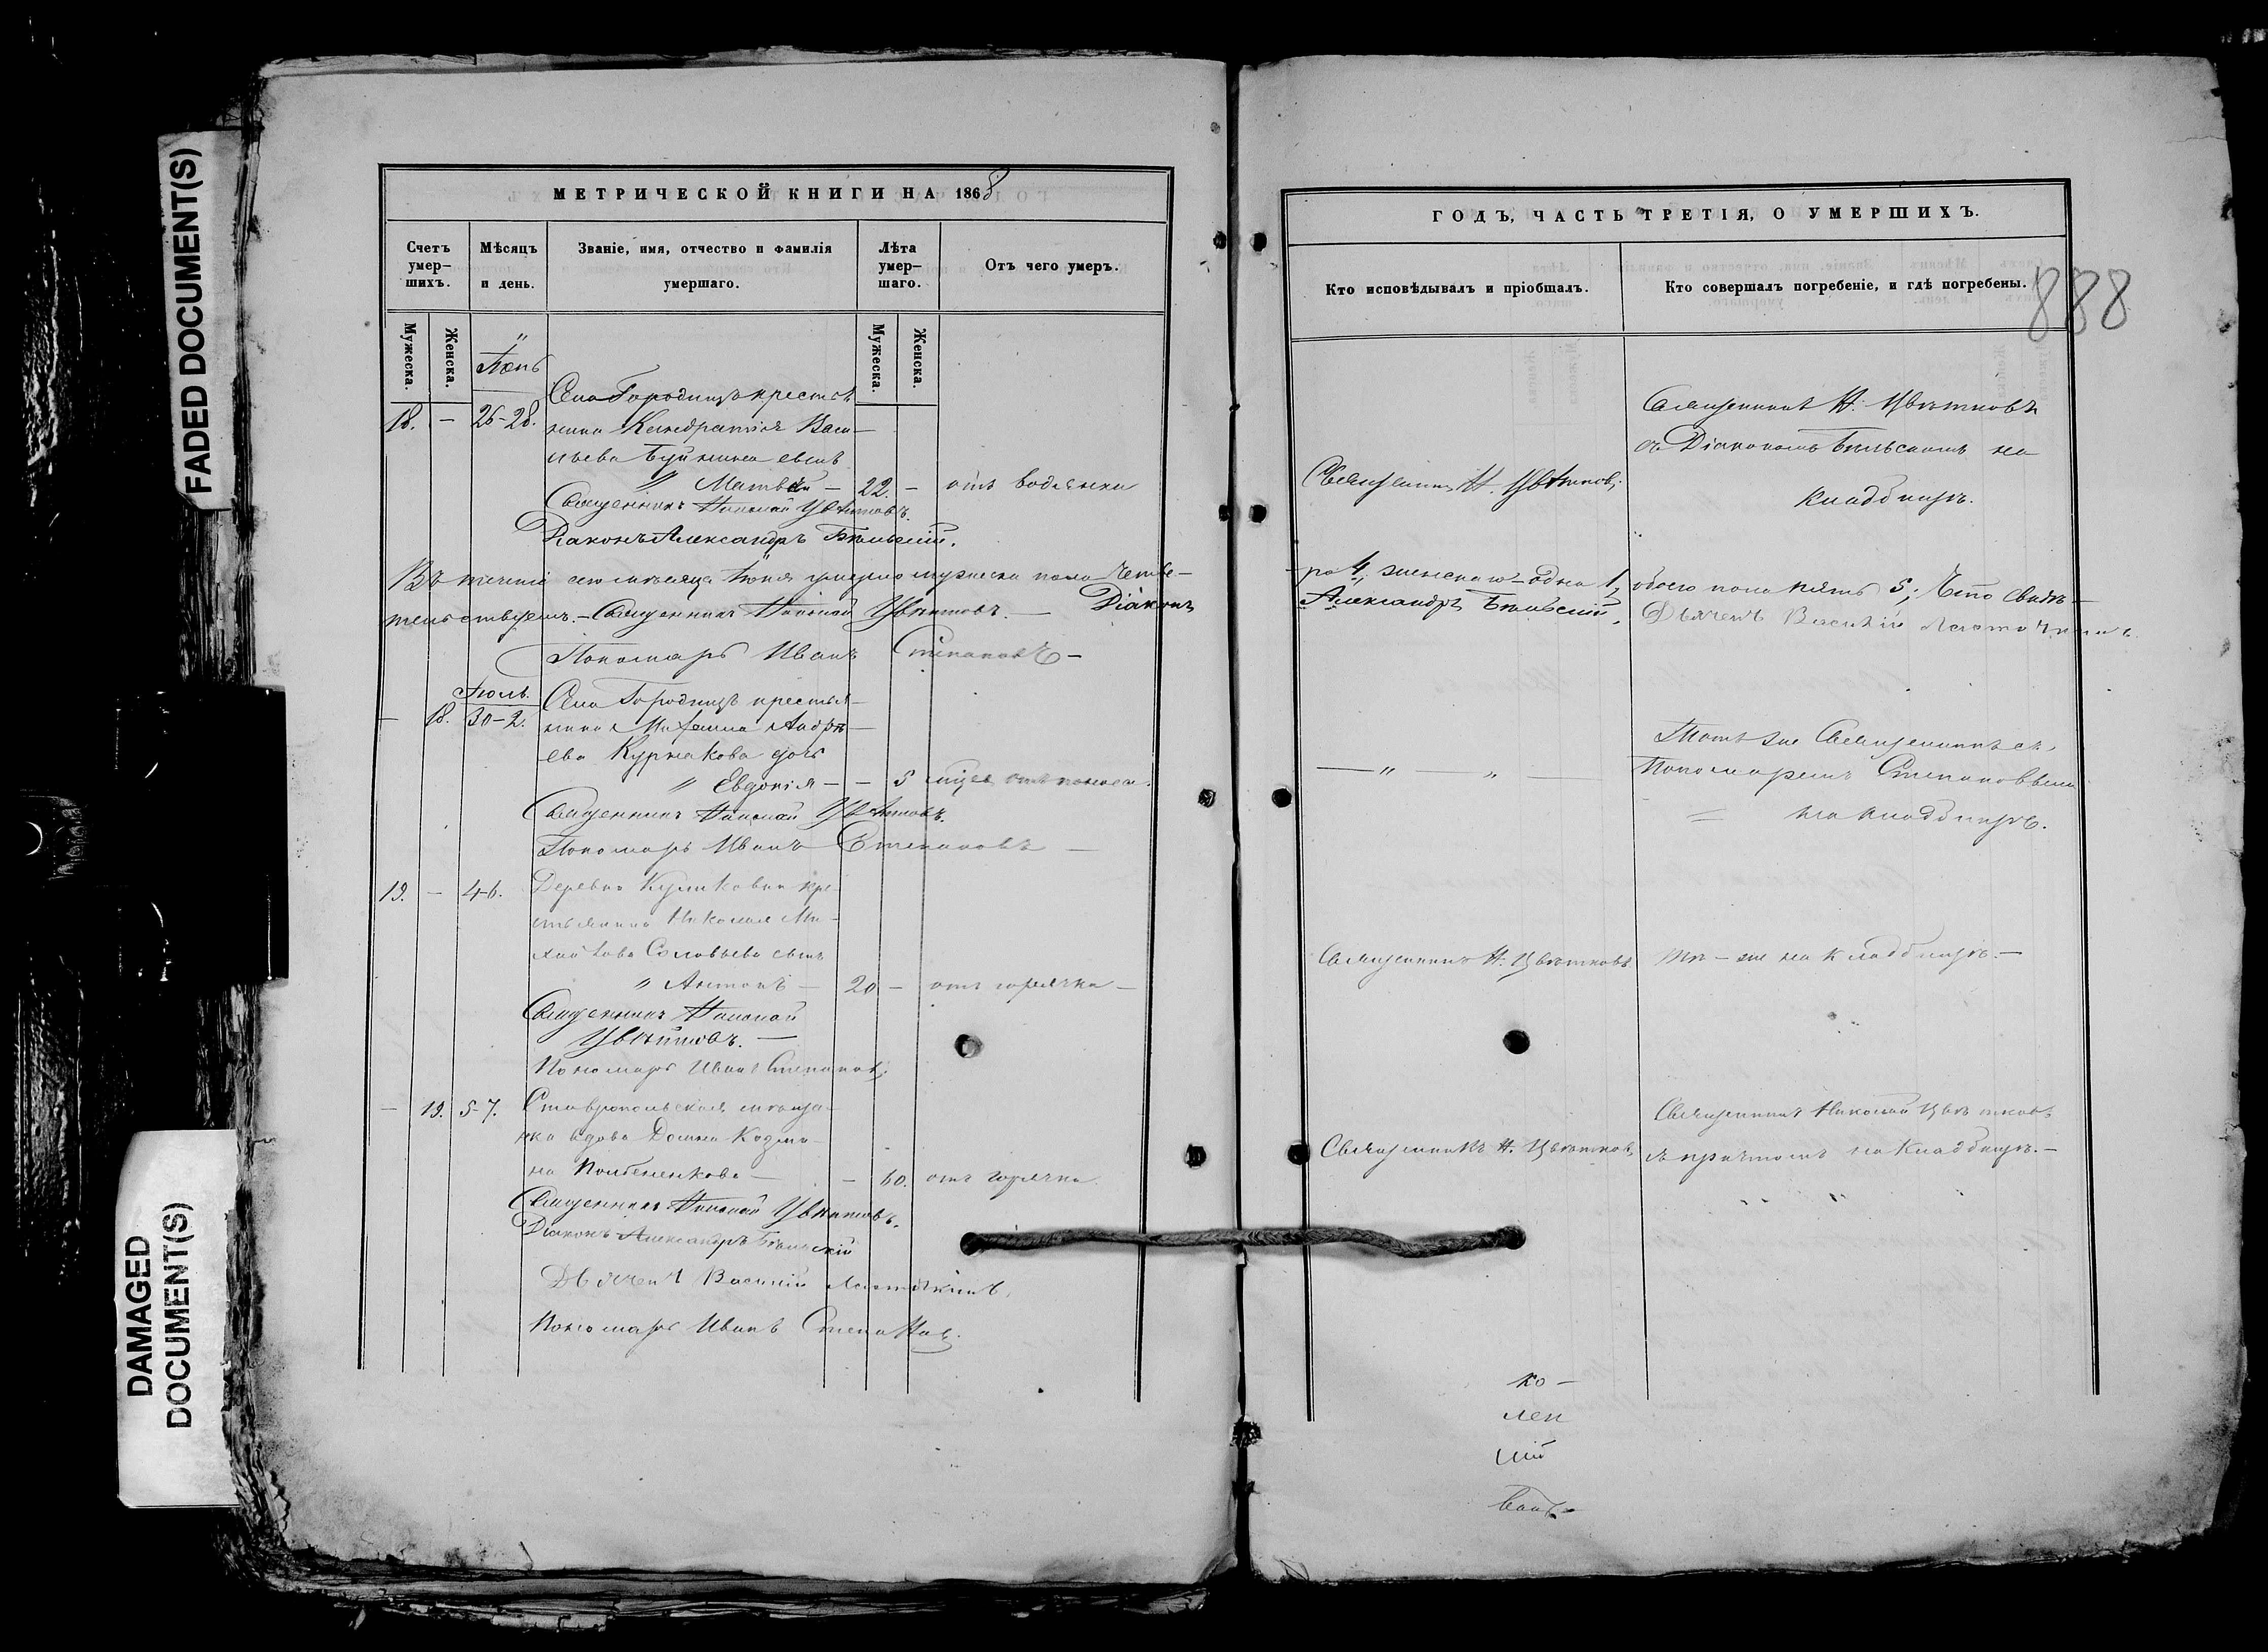 FADED DOCUMENT(S)
DAMAGED DOCUMENT(S)
МЕТРИЧЕСКОЙ КНИГИ НА 1868
Счетъ умер- шихъ.
Мѣсяцъ и день.
Званіе, имя, отчество и фамилія умершаго.
Лѣта умер- шаго.
Отъ чего умеръ.
Мужеска.
Женска.
Мужеска.
Женска.
18. — 26-28.
Села Городищъ крестья
нина Кандратія Васи-
льева сынъ
" Матвѣй — 22. — отъ водянки
Священникъ Николай Цвѣтковъ.
Діаконъ Александръ Бѣльскій.
Въ теченіе сего мѣсяца Іюня умерло мужеска пола четве-
тельствуемъ. — Священникъ Николай Цвѣтковъ. — Діаконъ
Пономарь Иванъ Степановъ —
Іюль.
— 18. 30-2.
Села Городищъ крестья-
нина Михаила Андрѣ-
ева Курнакова дочь
" Евдокія — — 5 мцев отъ поноса.
Священникъ Николай Цвѣтковъ.
Пономарь Иванъ Степановъ —
19. — 4-6.
Деревни Куликовки кре-
стьянина Николая Ми-
хайлова Соловьева сынъ
" Антонъ — 20 — отъ горячки —
Священникъ Николай
Цвѣтковъ. —
Пономарь Иванъ Степановъ
— 19. 5-7.
Ставропольская мѣща-
нка вдова Домна Козми-
на — — 60. отъ горячки.
Священникъ Николай Цвѣтковъ.
Діаконъ Александръ Бѣльскій
Дьячекъ Василій Ласточкинъ.
Пономарь Иванъ Степанов.
ГОДЪ, ЧАСТЬ ТРЕТІЯ, О УМЕРШИХЪ.
888
Кто исповѣдывалъ и пріобщалъ.
Кто совершалъ погребеніе, и гдѣ погребены.
Священникъ Н. Цвѣтков.
Священникъ Н. Цвѣтковъ
съ Діакономъ Бѣльскимъ на
кладбищѣ.
ро 4, женскаго — одна 1, обоего пола пять 5; Что свидѣ-
Александръ Бѣльскій. Дьячекъ Василій Ласточкинъ
— " " —
Тотъ же Священникъ съ
Пономаремъ Степановымъ
= на кладбищѣ.
Священникъ Н. Цвѣтковъ
тѣ-же на кладбищѣ. —
Священникъ Н. Цвѣтков,
Священникъ Николай Цвѣтковъ
съ причтомъ на кладбищѣ. —
ко —